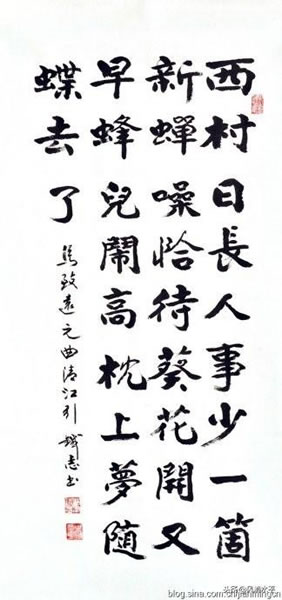 西村日長人事少一箇
新蟬噪恰待葵花開又
早蜂兒鬧高枕上夢隨
蝶去了
馬致遠元曲清江引 志书
blog.sina.com.cn/jianmingcn